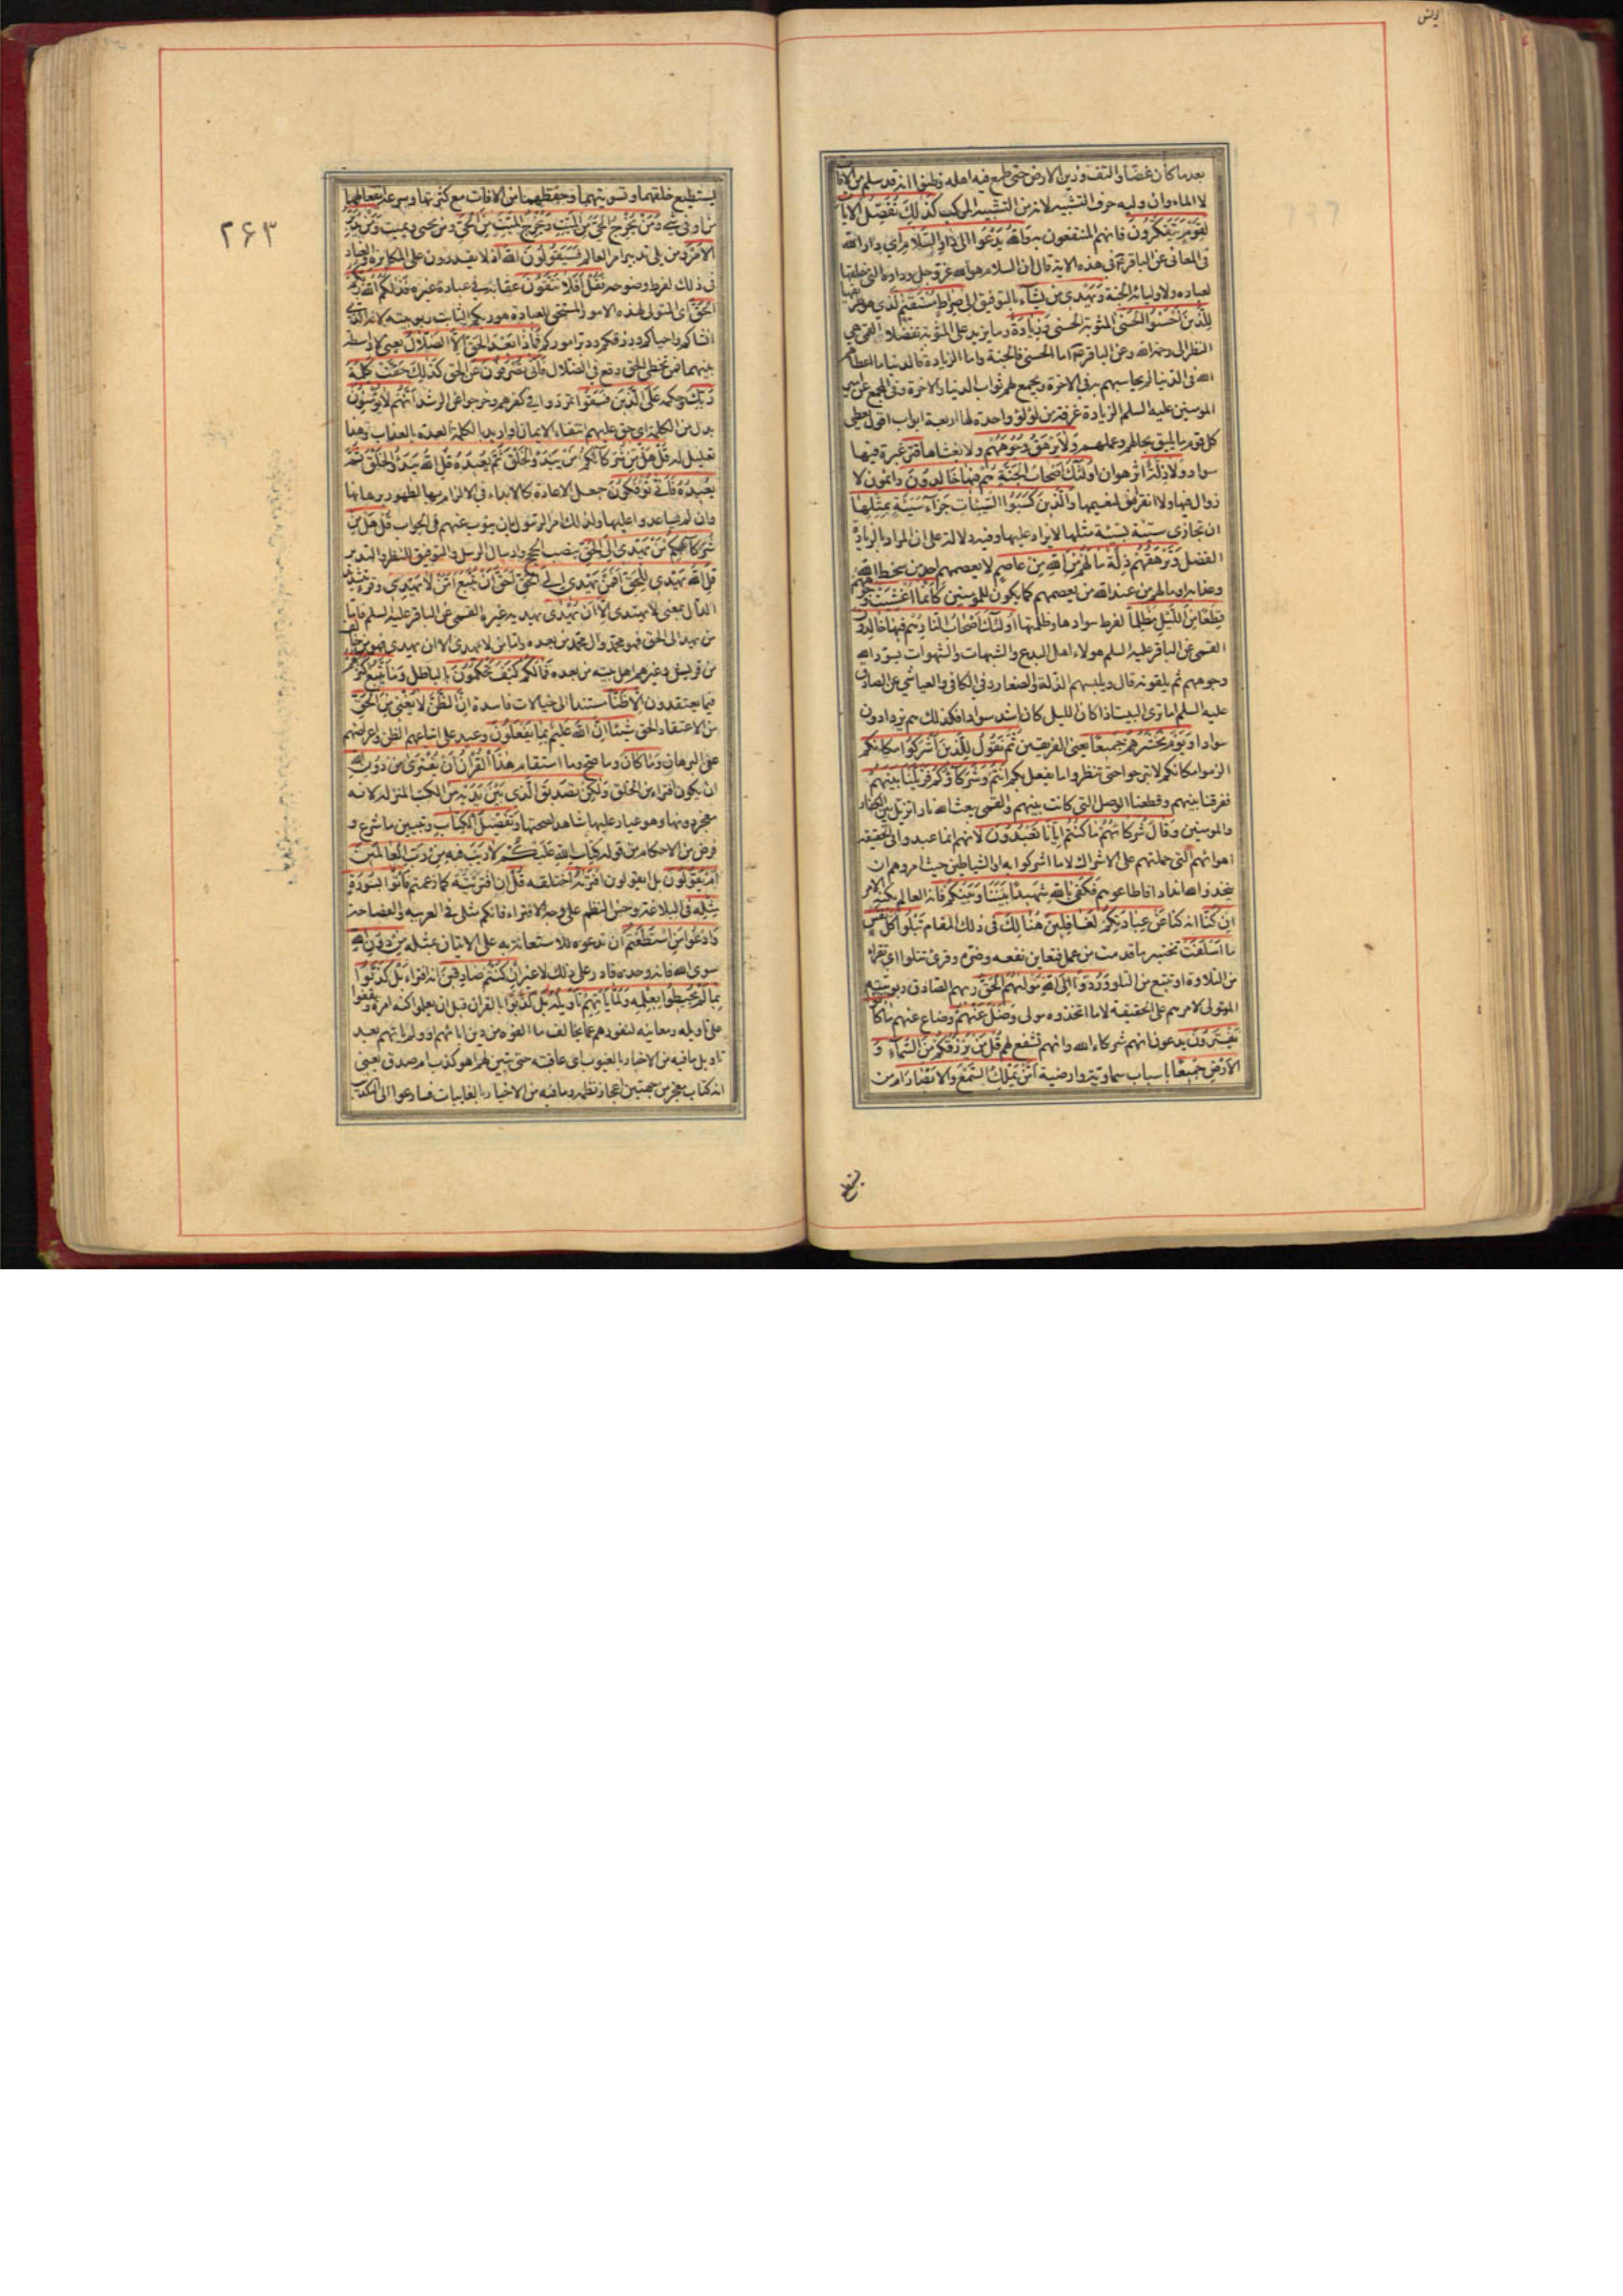 يونس
بعد ما كان غضا والتف وزين الارض حتى طمع فيه اهله وظنوا انه قد سلم من الافات
لا الماء وان وليه حرف التشبيه لانه من التشبيه المركب كذلك نفصل الايات
لقوم يتفكرون فانهم المنتفعون به والله يدعوا الى دار السلام اى دار الله
فى المعانى عن الباقر فى هذه الاية قال ان السلام هو الله عز وجل وداره التى خلقها
لعباده ولاوليائه الجنة ويهدى من يشاء بالتوفيق الى صراط مستقيم الذى هو طريقها
للذين احسنوا الحسنى المثوبة الحسنى وزيادة وما يزيد على المثوبة تفضلا القمى هى
النظر الى رحمة الله وعن الباقر اما الحسنى فالجنة واما الزيادة فالدنيا ما اعطاهم
الله فى الدنيا لم يحاسبهم به فى الاخرة ويجمع لهم ثواب الدنيا والاخرة وفى المجمع عن امير
المومنين عليه السلم الزيادة غرفة من لؤلؤ واحدة لها اربعة ابواب اقول يعطى
كل قوم ما يليق بحالهم وعملهم ولا يرهق وجوههم ولا يغشاها قتر غبرة فيها
سواد ولا ذلة اثر هوان اولئك اصحاب الجنة هم فيها خالدون دائمون لا
زوال فيها ولا انقراض لنعيمها والذين كسبوا السيئات جزاء سيئة بمثلها
ان تجازى سيئة بسيئة مثلها لا يزاد عليها وفيه دلالة على ان المراد بالزيادة
الفضل وترهقهم ذلة ما لهم من الله من عاصم لا يعصمهم احد من سخط الله
وعذابه او ما لهم من عند الله من يعصمهم كما يكون للمومنين كانما اغشيت وجوههم
قطعا من الليل مظلما لفرط سوادها وظلمتها اولئك اصحاب النار هم فيها خالدون
القمى عن الباقر عليه السلم هولاء اهل البدع والشبهات والشهوات يسود الله
وجوههم ثم يلقونه قال ويلبسهم الذلة والصغار وفى الكافى والعياشي عن الصادق
عليه السلم اما ترى البيت اذا كان الليل كان اشد سوادا فكذلك هم يزدادون
سوادا ويوم نحشرهم جميعا يعنى الفريقين ثم نقول للذين اشركوا مكانكم
الزموا مكانكم لا تبرحوا حتى تنظروا ما يفعل بكم انتم وشركاؤكم فزيلنا بينهم
ففرقنا بينهم وقطعنا الوصل التى كانت بينهم والقمى يبعث الله نارا تزيل بين الكفار
والمومنين وقال شركاؤهم ما كنتم ايانا تعبدون لانهم انما عبدوا فى الحقيقة
اهوائهم التى حملتهم على الاشراك لا ما اشركوا به او الشياطين حيث امروهم ان
يتخذوا لله اندادا فاطاعوهم فكفى بالله شهيدا بيننا وبينكم فانه العالم بكنه الامر
ان كنا انه كنا عن عبادتكم لغافلين هنالك فى ذلك المقام تبلوا كل نفس
ما اسلفت تختبر ما قدمت من عمل فتعاين نفعه وضره وقرئ تتلوا اى تقراء
من التلاوة او تتبع من التلو وردوا الى الله موليهم الحق ربهم الصادق ربوبيته
المتولى لامرهم على الحقيقة لا ما اتخذوه مولى وضل عنهم وضاع عنهم ما كانوا
يفترون يدعون انهم شركاء الله وانهم تشفع لهم قل من يرزقكم من السماء و
الارض جميعا باسباب سماوية وارضية امن يملك السمع والابصار ام من
يستطيع
۲۶۳
يستطيع خلقهما وتسويتهما او حفظهما من الافات مع كثرتها وسرعة انفعالهما
من ادنى شى ومن يخرج الحى من الميت ويخرج الميت من الحى ومن يحيى ويميت ومن يدبر
الامر ومن يلى تدبير امر العالم فسيقولون الله اذ لا يقدرون على المكابرة والعناد
فى ذلك لفرط وضوحه فقل افلا تتقون عقابه فى عبادة غيره فذلكم الله ربكم
الحق اى المتولى لهذه الامور المستحق للعبادة هو ربكم الثابت ربوبيته لانه الذى
انشاكم واحياكم ورزقكم ودبر اموركم فماذا بعد الحق الا الضلال يعنى لا واسطة
بينهما فمن تخطى الحق وقع فى الضلال فانى تصرفون عن الحق كذلك حقت كلمة
ربك وحكمه على الذين فسقوا تمردوا فى كفرهم وخرجوا عن الرشد انهم لا يؤمنون
بدل من الكلمة اى حق عليهم انتفاء الايمان او اريد بالكلمة العدة بالعذاب وهذا
تعليل له قل هل من شركائكم من يبدؤ الخلق ثم يعيده قل الله يبدؤ الخلق ثم
يعيده فانى تؤفكون جعل الاعادة كالابداء فى الالزام بها لظهور برهانها
وان لم يساعدوا عليها ولذلك امر الرسول بان ينوب عنهم فى الجواب قل هل من
شركائكم من يهدى الى الحق بنصب الحجج وارسال الرسل والتوفيق للنظر والتدبر
قل الله يهدى للحق افمن يهدى الى الحق احق ان يتبع امن لا يهدى وقرئ بتشديد
الدال بمعنى لا يهتدى الا ان يهدى يهديه غيره القمى عن الباقر عليه السلم فاما
من يهدى الى الحق فهو محمد وال محمد من بعده واما من لا يهدى الا ان يهدى فهو من خالف
من قريش وغيرهم اهل بيته من بعده فما لكم كيف تحكمون بالباطل وما يتبع اكثرهم
فيما يعتقدون الا ظنا مستندا الى خيالات فاسدة ان الظن لا يغنى من الحق
من الاعتقاد الحق شيئا ان الله عليم بما يفعلون وعيد على اتباعهم الظن واعراضهم
عن البرهان وما كان وما صح وما استقام هذا القران ان يفترى من دون الله
ان يكون افتراء من الخلق ولكن تصديق الذى بين يديه من الكتب المنزلة لانه
معجز دونها وهو عيار عليها شاهد لصحتها وتفصيل الكتاب وتبيين ما شرع و
فرض من الاحكام من قوله كتاب الله عليكم لا ريب فيه من رب العالمين
ام يقولون بل ايقولون افتراه اختلقه قل ان افتريته كما زعمتم فاتوا بسورة
مثله فى البلاغة وحسن النظم على وجه الافتراء فانكم مثلى فى العربية والفصاحة
وادعوا من استطعتم ان تدعوه للاستعانة به على الاتيان بمثله من دون الله
سوى الله فانه وحده قادر على ذلك لا غير ان كنتم صادقين انه افتراء بل كذبوا
بما لم يحيطوا بعلمه ولما ياتهم تاويله بل كذبوا بالقران قبل ان يعلموا كنه امره ويقفوا
على تاويله ومعانيه لنفورهم عما يخالف ما الفوه من دين ابائهم ولما ياتهم بعد
تاويل ما فيه من الاخبار بالغيوب اى عاقبته حتى تبين لهم اهو كذب ام صدق يعنى
انه كتاب معجز من جهتين اعجاز نظمه وما فيه من الاخبار بالغايبات فسارعوا الى التكذيب